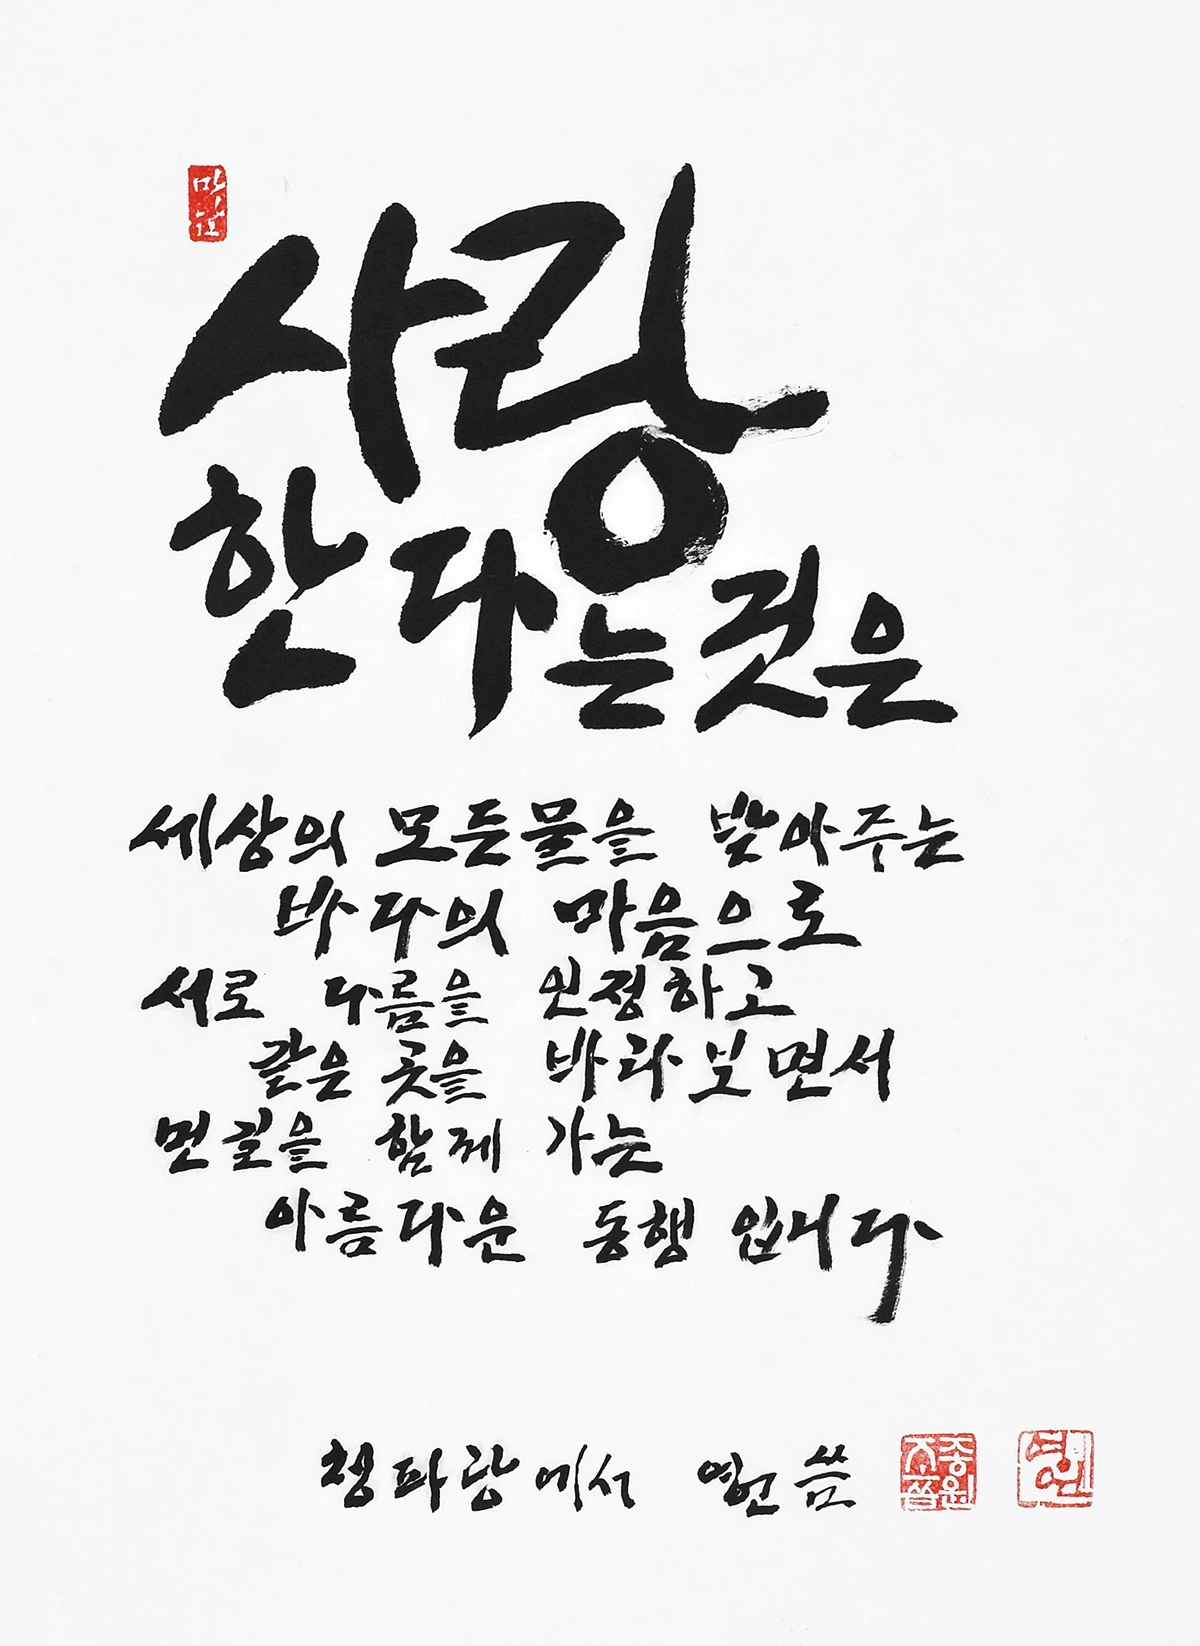 사랑
한다는것은
세상의 모든물을 받아주는
바다의 마음으로
서로 다름을 인정하고
같은 곳을 바라보면서
먼길을 함께 가는
아름다운 동행 입니다
청파랑에서 영헌 씀